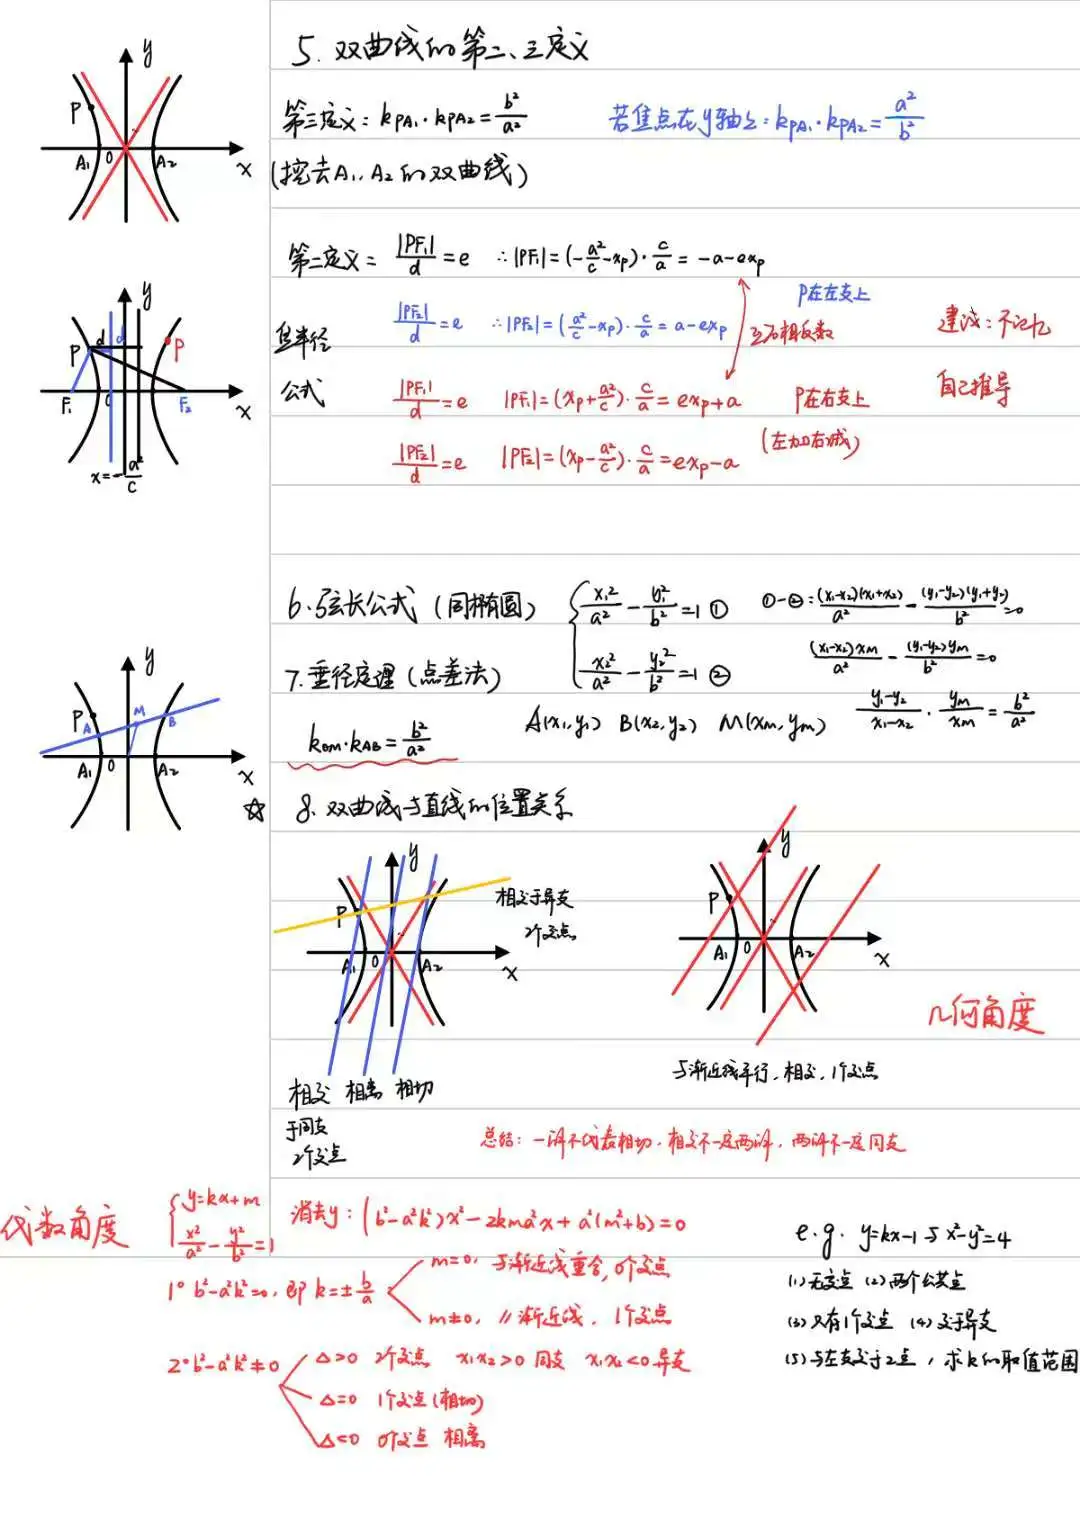 5. 双曲线的第二、三定义
第三定义: kPA₁·kPA₂=b²/a²
若焦点在y轴上: kPA₁·kPA₂=a²/b²
(挖去A₁, A₂的双曲线)
y
P
A₁ O A₂ x
第二定义: |PF₁|/d=e ∴|PF₁|=(-a²/c-xₚ)·c/a=-a-exₚ
P在左支上
|PF₂|/d=e ∴|PF₂|=(a²/c-xₚ)·c/a=a-exₚ
互为相反数
建议:不记忆
自己推导
焦半径
公式
|PF₁|/d=e |PF₁|=(xₚ+a²/c)·c/a=exₚ+a
P在右支上
(左加右减)
|PF₂|/d=e |PF₂|=(xₚ-a²/c)·c/a=exₚ-a
y
P d d P
F₁ O F₂ x
x=-a²/c
6. 弦长公式 (同椭圆)
7. 垂径定理 (点差法)
kOM·kAB=b²/a²
x₁²/a²-y₁²/b²=1 ①
x₂²/a²-y₂²/b²=1 ②
①-②: (x₁-x₂)(x₁+x₂)/a²-(y₁-y₂)(y₁+y₂)/b²=0
(x₁-x₂)xM/a²-(y₁-y₂)yM/b²=0
A(x₁,y₁) B(x₂,y₂) M(xM,yM)
y₁-y₂/x₁-x₂·yM/xM=b²/a²
y
P A M B
A₁ O A₂ x
☆ 8. 双曲线与直线的位置关系
y
P
A₁ O A₂ x
相交于异支
2个交点
相交 相离 相切
于同支
2个交点
y
P
A₁ O A₂ x
几何角度
与渐近线平行, 相交, 1个交点
总结: 一解不代表相切, 相交不一定两解, 两解不一定同支
代数角度
y=kx+m
x²/a²-y²/b²=1
消去y: (b²-a²k²)x²-2kma²x+a²(m²+b)=0
1° b²-a²k²=0, 即k=±b/a
m=0, 与渐近线重合, 0个交点
m≠0, //渐近线, 1个交点
2° b²-a²k²≠0
△>0 2个交点 x₁x₂>0 同支 x₁x₂<0 异支
△=0 1个交点(相切)
△<0 0个交点 相离
e.g. y=kx-1与x²-y²=4
(1)无交点 (2)两个公共点
(3)只有1个交点 (4)交于异支
(5)与左支交于2点, 求k的取值范围